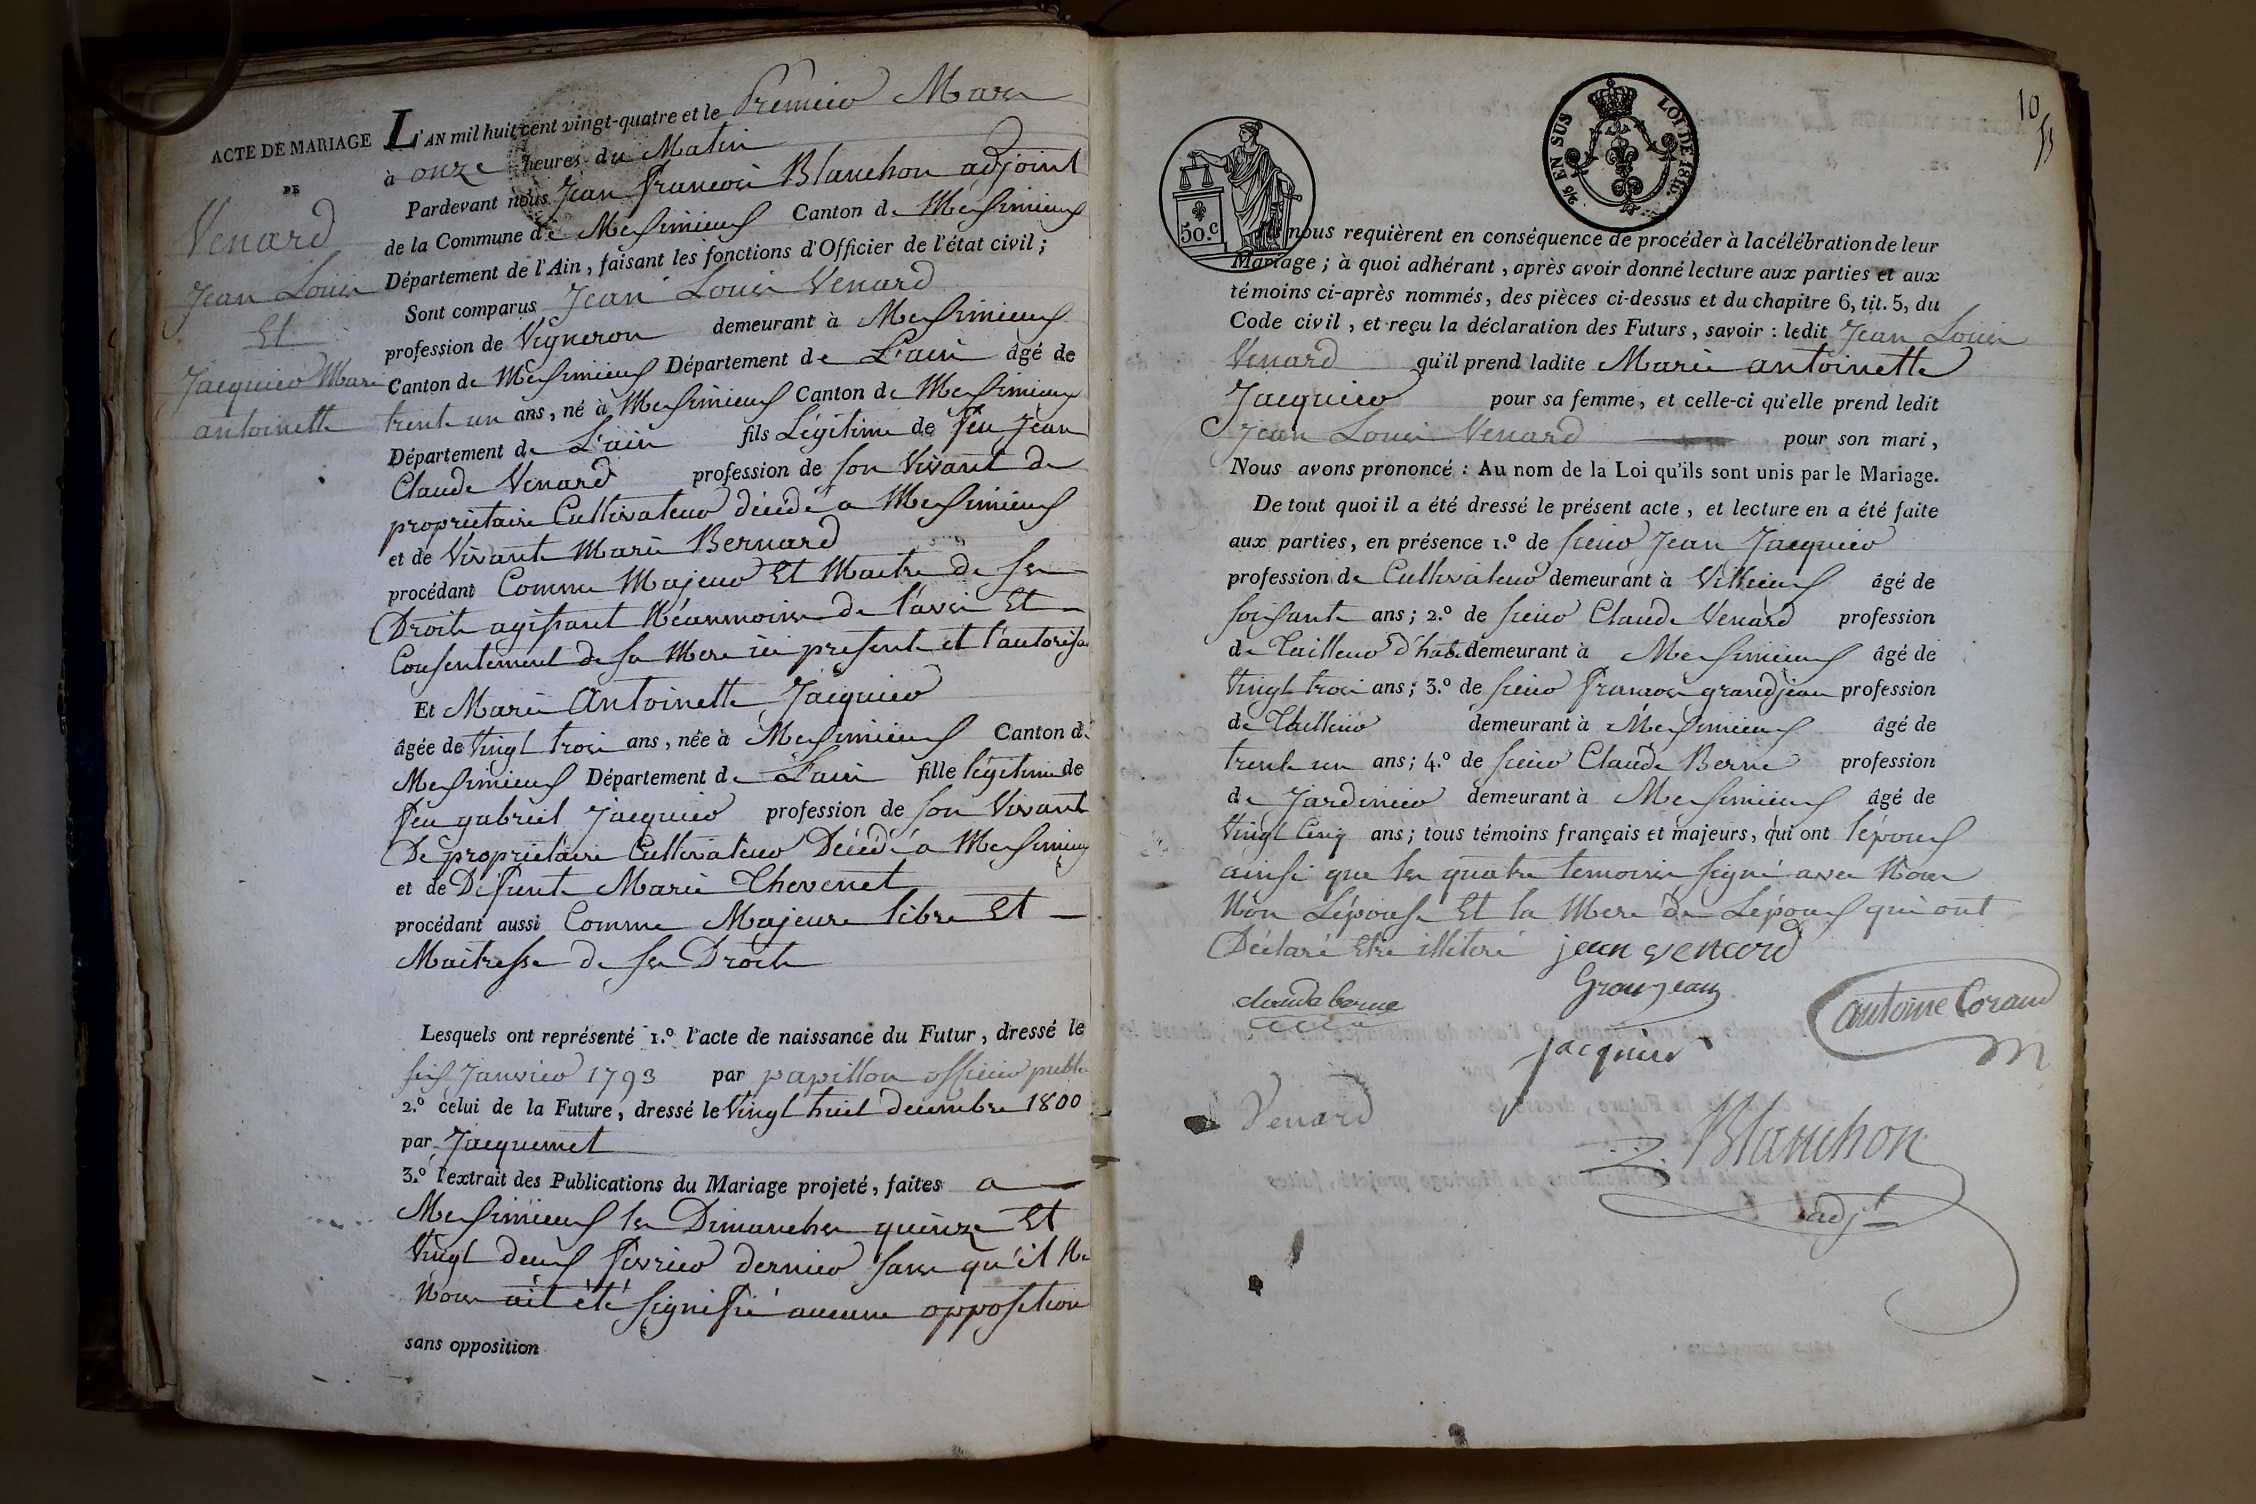 ACTE DE MARIAGE
DE
Venard
Jean Louis
Et
Jacquier Marie
antoinette
L'AN mil huit cent vingt-quatre et le Premier Mars
à onze heures du Matin
Pardevant nous Jean françois Blanchon adjoint
de la Commune de Messimieux Canton de Messimieux
Département de l'Ain, faisant les fonctions d'Officier de l'état civil;
Sont comparus Jean Louis Venard
profession de Vigneron demeurant à Messimieux
Canton de Messimieux Département de L'ain âgé de
trente un ans, né à Messimieux Canton de Messimieux
Département de L'ain fils Légitime de feu Jean
Claude Venard profession de son Vivant de
propriétaire Cultivateur décédé a Messimieux
et de Vivante Marie Bernard
procédant Comme Majeur Et Maitre de ses
Droits agissant Néanmoins de l'avis Et
Consentement de sa Mere ici presente et l'autorisa
Et Marie Antoinette Jacquier
âgée de Vingt trois ans, née à Messimieux Canton de
Messimieux Département de L'ain fille légitime de
feu gabriel Jacquier profession de son Vivant
De propriétaire Cultivateur Décédé a Messimieux
et de Défunte Marie Thevenet
procédant aussi Comme Majeure libre Et
Maitresse de ses Droits
Lesquels ont représenté 1.º l'acte de naissance du Futur, dressé le
six Janvier 1793 par papillon officier public
2.º celui de la Future, dressé le Vingt huit decembre 1800
par Jacquemet
3.º l'extrait des Publications du Mariage projeté, faites a
Messimieux les Dimanches quinze Et
Vingt deux fevrier dernier sans qu'il Ne
Nous ait été signifié aucune opposition
sans opposition
10
50.c
2/10 EN SUS
LOI DE 1816.
nous requièrent en conséquence de procéder à la célébration de leur
Mariage; à quoi adhérant, après avoir donné lecture aux parties et aux
témoins ci-après nommés, des pièces ci-dessus et du chapitre 6, tit. 5, du
Code civil, et reçu la déclaration des Futurs, savoir : ledit Jean Louis
Venard qu'il prend ladite Marie antoinette
Jacquier pour sa femme, et celle-ci qu'elle prend ledit
Jean Louis Venard pour son mari,
Nous avons prononcé : Au nom de la Loi qu'ils sont unis par le Mariage.
De tout quoi il a été dressé le présent acte, et lecture en a été faite
aux parties, en présence 1.º de sieur Jean Jacquier
profession de Cultivateur demeurant à Villieux âgé de
soixante ans; 2.º de sieur Claude Venard profession
de Tailleur d'hab. demeurant à Messimieux âgé de
Vingt trois ans; 3.º de sieur françois grandjean profession
de Tailleur demeurant à Messimieux âgé de
trente un ans; 4.º de sieur Claude Berne profession
de Jardinier demeurant à Messimieux âgé de
Vingt Cinq ans; tous témoins français et majeurs, qui ont l'époux
ainsi que les quatre temoins signé avec Nous
Non L'épouse Et la Mere de L'époux qui ont
Déclaré Etre illiteré jean venard
Granjean
claude berne
antoine Coraud
Jacquier
Venard
Blanchon
adjt